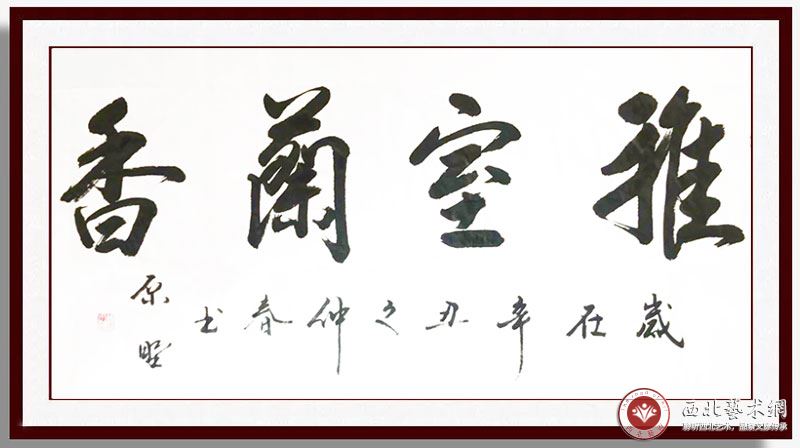 雅室蘭香
歲在辛丑之仲春書
原野
西北藝术網